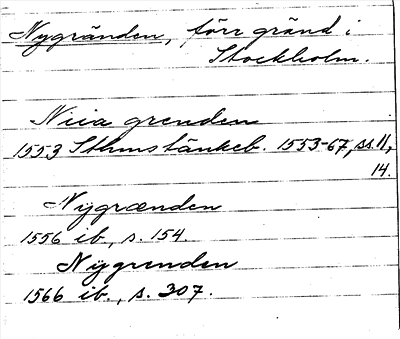 Nygränden, förr gränd i
Stockholm.
Niia grenden
1553 Sthms tänkeb. 1553-67, ss. 11,
14.
Nygrænden
1556 ib., s. 154.
Nÿgrenden
1566 ib., s. 307.